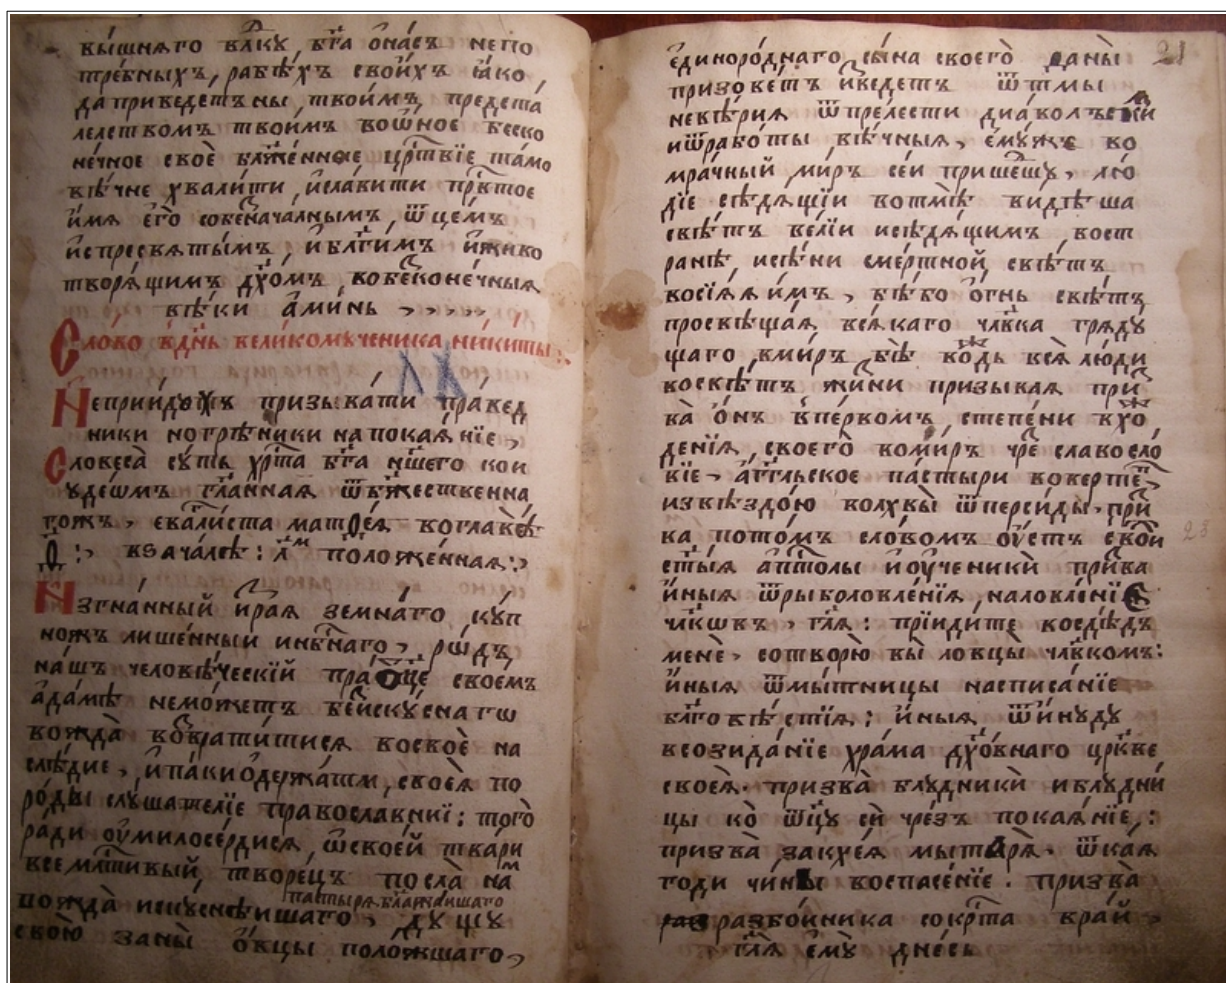 вы́шняго влⷣку бг҃а ѡ҆на́съ непо
тре́бныхъ, рабѣ́хъ свои́хъ ꙗ҆́ко
да приведетъ ны, твои́мъ, предста́
телствомъ твои́мъ во ѡ҆́ное беско
не́чное своѐ блаже́нное црⷭ҇твїе та́мо
вѣ́чне хвали́ти, и҆сла́вити прⷭ҇тое
и҆́мя є҆го̀ собезнача́лнымъ, ѿце́мъ
и҆спресвяты́мъ, и҆бл҃ги́мъ и҆живо
творя́щимъ дх҃омъ, вобезконе́чныя
вѣ́ки а҆ми́нь
Сло́во в̾дн҃ь вели́комꙋченика ники́ты:
Неприидо́хъ призыва́ти пра́вед
ники но грѣ́шники на покая́нїе,
Словеса̀ сꙋ́ть хрⷭ҇та̀ бг҃а на́шего кои
ꙋдеѡмъ гл҃анная ѿ бж҃ественна
гожъ, єва́нгⷧ҇иста матѳе́я в̾ главѣ̀
ѳ҃: в̾ зача́лѣ: л҃ положе́нная:
Изгна́нный и҆зрая̀ земна́го кꙋп
ножъ лише́нный инбⷭ҇наго, рѡ́дъ
на́шъ человѣ́ческїй праѻц҃е своемъ
а҆да́мѣ немо́жетъ без̾ и҆скꙋ́снагѡ
вожда̀ возврати́тися восвоѐ на
слѣ́дие, и҆па́ки ѻ҆держа́ти, своея̀ по
ро́ды слы́шателїе правосла́внїи: того̀
ра́ди оу҆милосе́рдися, ѡ҆своей тва́ри
всемлⷭ҇тивый, творе́цъ посла̀ на́мъ
пастыря блажайшаго
вожда̀ искꙋснѣ́йшаго, дꙋшꙋ
свою̀ заны̀ ѻ҆́вцы поло́жшаго,
21
є҆диноро́днаго сы́на своего̀ даны̀
призове́тъ и҆зведе́тъ ѿ тмы̀
невѣ́рия ѿ пре́лести дия́волъскїи
и҆ ѿ рабо́ты вѣ́чныя, є҆мꙋ́же во
мра́чный ми́ръ се́й прише́дшꙋ, лю́
дїе сѣдя́щїи во тмѣ̀ ви́дѣша
свѣ́тъ ве́лїй и сѣдя́щимъ, во ст
ранѣ̀ и сѣ́ни сме́ртной свѣ́тъ
восїя́ и҆́мъ, бѣ́ бо ѻ҆гнь свѣ́тъ
просвѣщая, вся́каго члв҃ка гряду́
щаго, в̾ ми́ръ бѣ́ во́ждь вся̀ лю́ди
во свѣ́тъ жи́зни призывая при́з
ва ѻ҆́нъ в̾ пе́рвомъ, степе́ни вхо́ж
де́нїя, своего̀ во ми́ръ чре́з славосло́
вїе, а҆́гг҃льское па́стыри во верте́п
и звѣздо́ю волхвы̀ ѿ перси́ды, при́з
ва пото́мъ сло́вомъ оу҆́стъ свои́
ст҃ы́я а҆пⷭ҇толы и оу҆ченикѝ при́зва
и҆́ныя ѿ рыболовле́нїя, на ловле́нїе
члв҃кѡвъ, гл҃я: прїиди́те во слѣ́дъ
менѐ, сотворю̀ вы̀ ловцы̀ члв҃комъ:
и҆́ныя ѿ мы́тницы на списа́нїе
бл҃говѣ́стїя; и҆́ныя, ѿ и҆нꙋ́дꙋ
в созида́нїе хра́ма дх҃о́внаго цр҃кве
своея̀. призва̀ блꙋдникѝ и блꙋдни́
цы ко ѻ҆ц҃ꙋ̀ си́ чре́зъ покая́нїе:
призва̀ закхе́я мытаря̀. ѿ кая
годи чи́ны во спасе́нїе. призва̀
разбо́йника со крⷭ҇та̀ в рай,
гл҃я є҆мꙋ̀ дне́сь
23